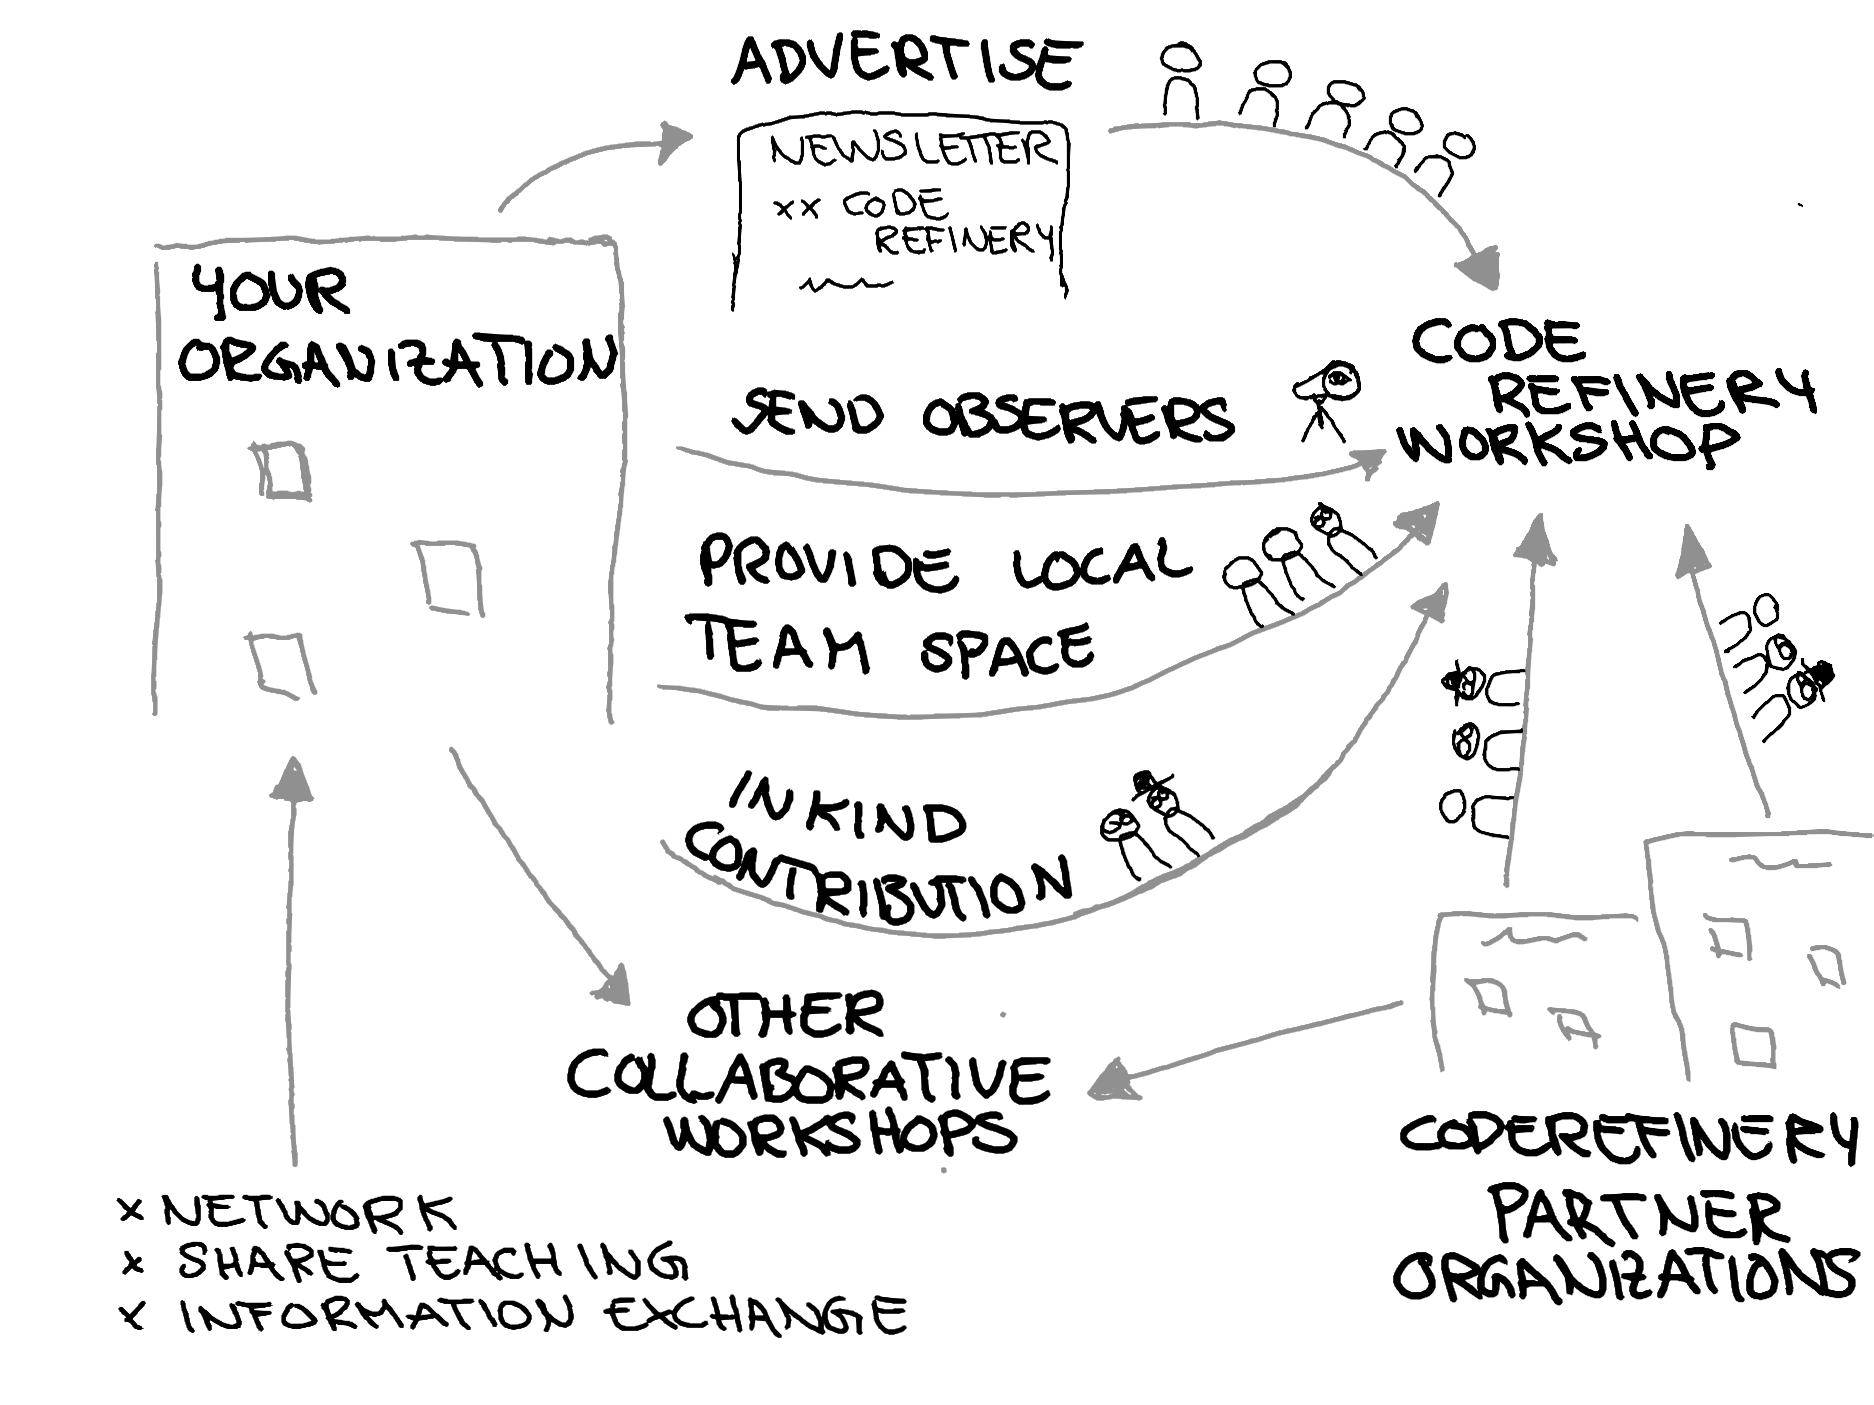 ADVERTISE
NEWSLETTER
xx CODE
REFINERY
YOUR
ORGANIZATION
CODE
REFINERY
WORKSHOP
SEND OBSERVERS
PROVIDE LOCAL
TEAM SPACE
IN KIND
CONTRIBUTION
OTHER
COLLABORATIVE
WORKSHOPS
CODEREFINERY
PARTNER
ORGANIZATIONS
x NETWORK
x SHARE TEACHING
x INFORMATION EXCHANGE